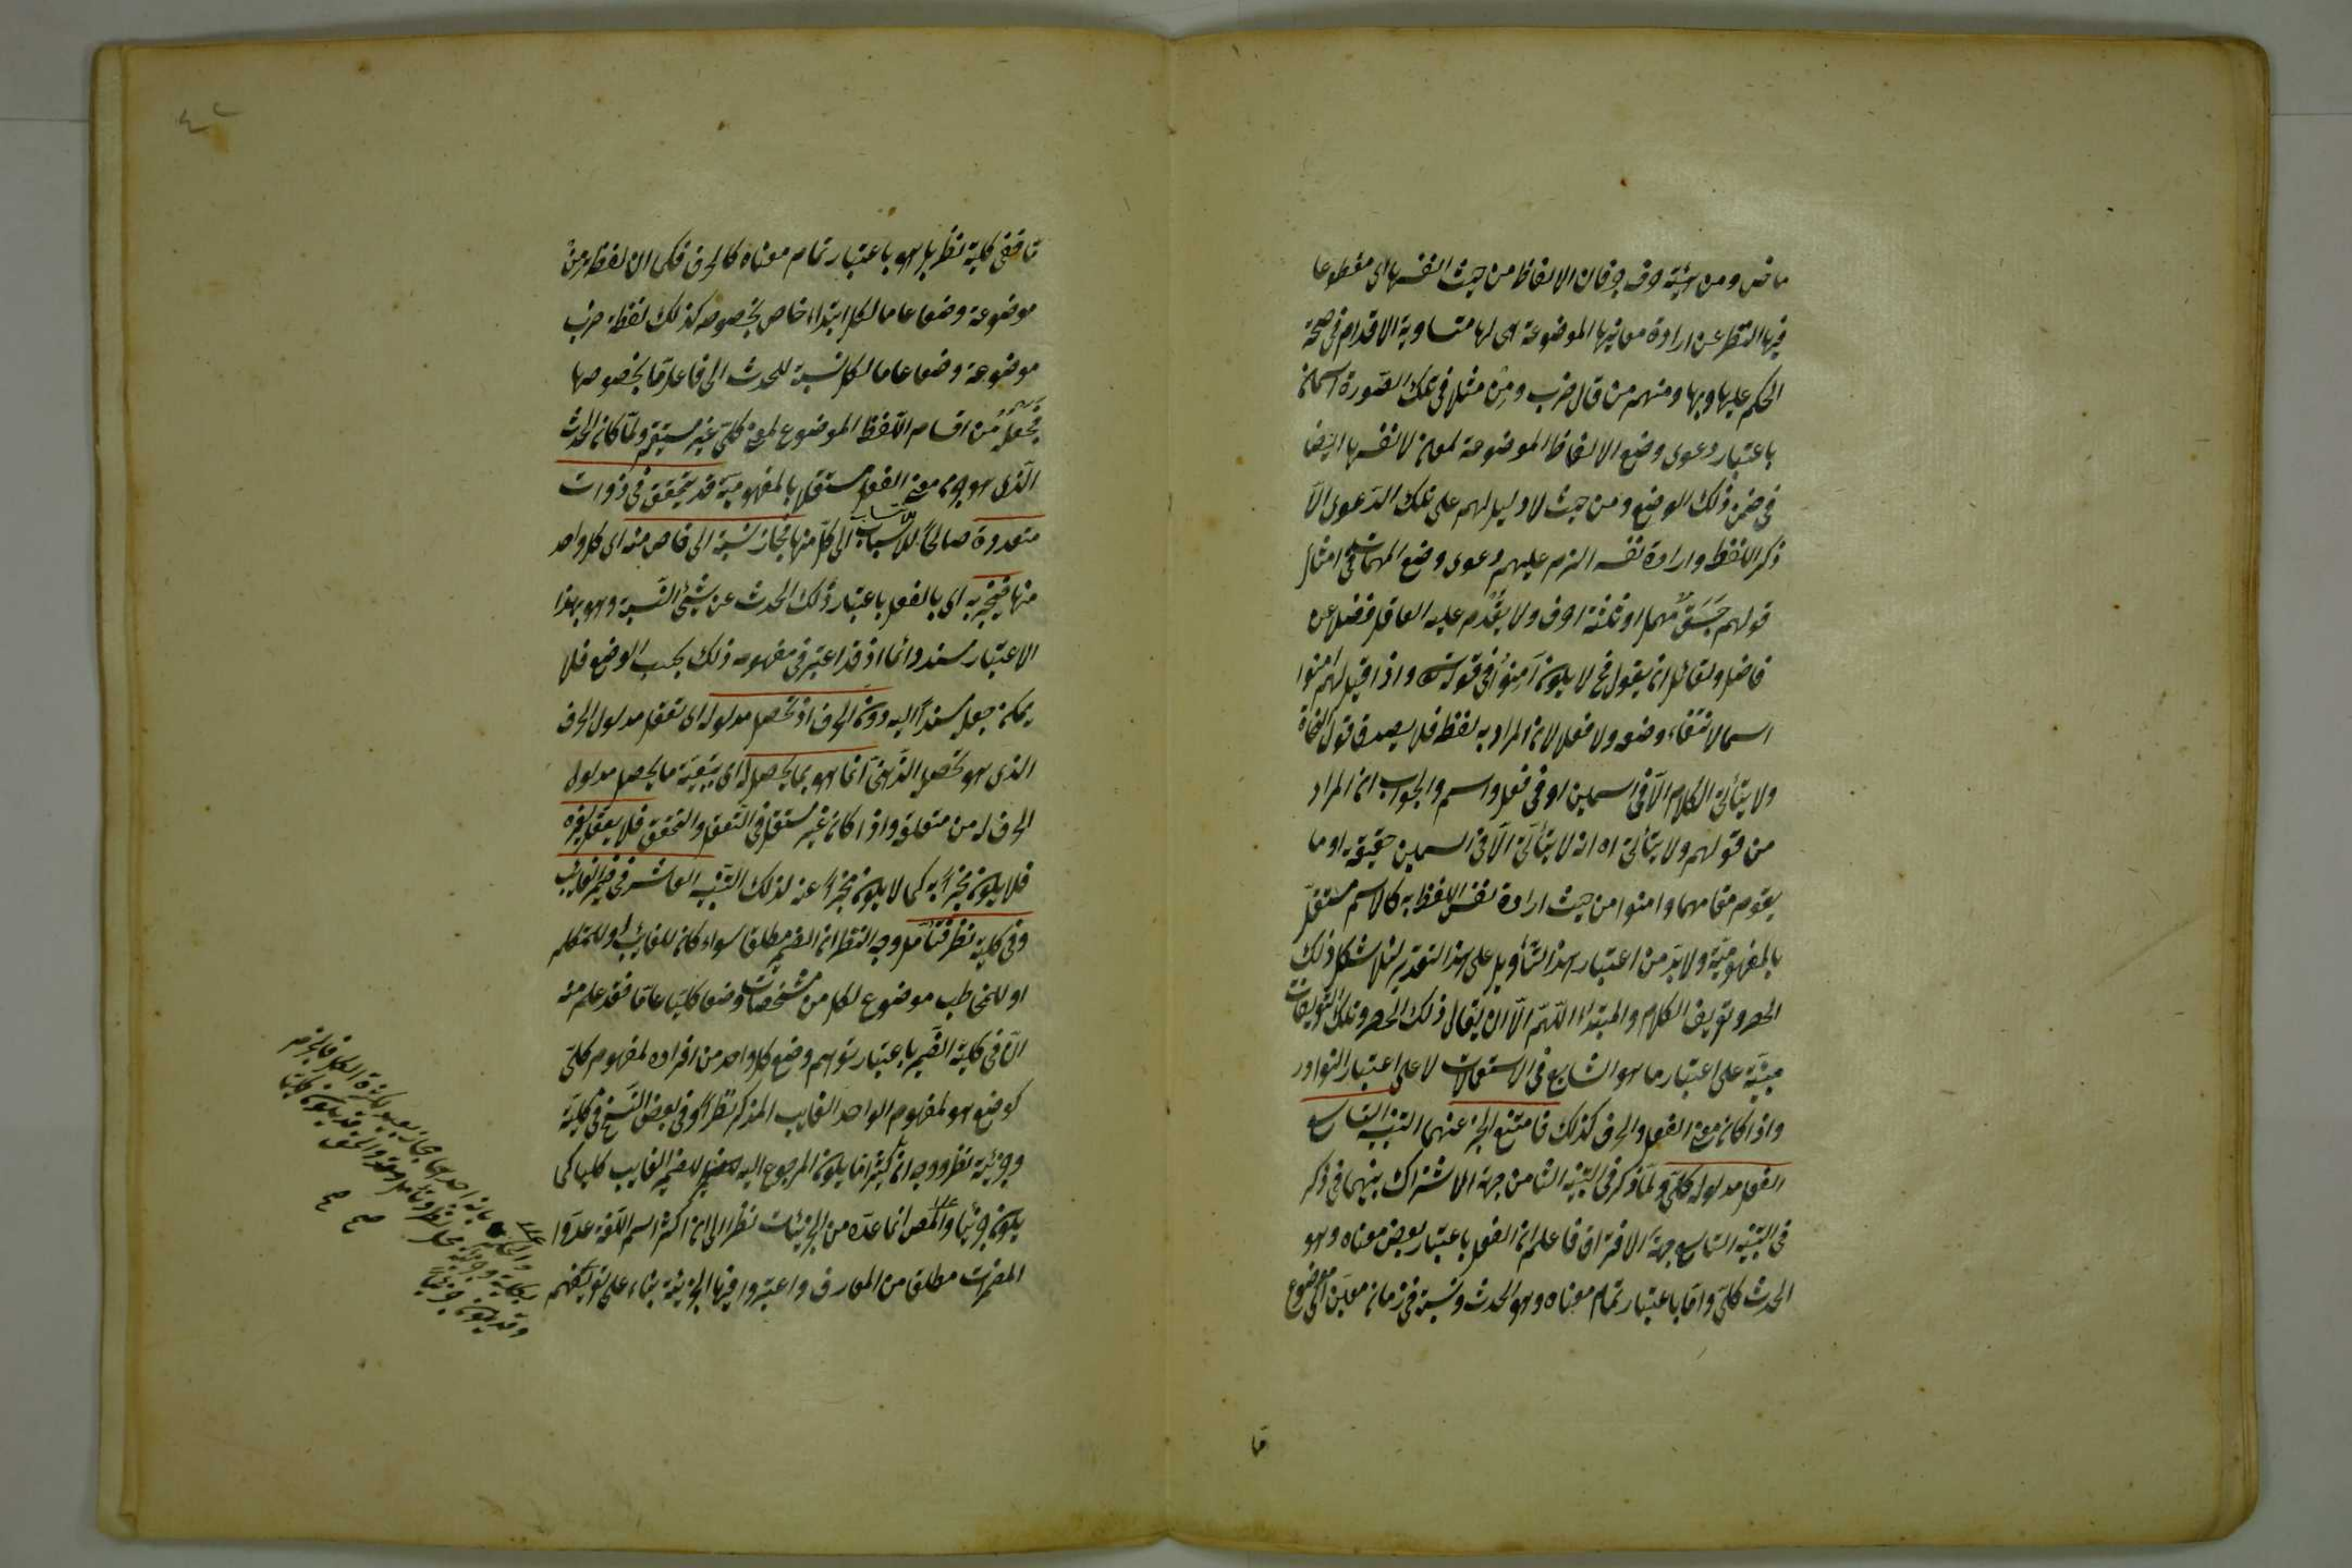 ماض ومن هيئة حرف جر فان الالفاظ من حيث انفسها اى مقطوعا
فيها النظر عن ارادة معانيها الموضوعة هى لها متساوية الاقدام فى صحة
الحكم عليها وبها ومنهم من قال ضرب ومن مثلا فى تلك الصورة اسمان
باعتبار دعوى وضع الالفاظ الموضوعة لمعان لانفسها ايضا
فى ضمن ذلك الوضع ومن حيث لا دليل لهم على تلك الدعوى الا
ذكر اللفظ وارادة نفسه الزم عليهم دعوى وضع المهملات فى امثال
قولهم جسق مهمل او ثلثة احرف ولا يقدم عليه العاقل فضلا عن
فاضل ولقائل ان يقول فح لا يكون آمنوا فى قوله تعالى واذا قيل لهم آمنوا
اسما لانتفاء وضعه ولا فعلا لان المراد به لفظ فلا يصدق قول النحاة
ولا يتأتى الكلام الا فى اسمين او فى فعل واسم والجواب ان المراد
من قولهم ولا يتأتى اه انه لا يتأتى الا فى اسمين حقيقة او ما
يقوم مقامهما وامنوا من حيث ارادة نفس اللفظ به كالاسم مستقل
بالمفهومية ولا بد من اعتبار هذا التأويل على هذا التقدير لئلا يشكل ذلك
الحصر وتعريف الكلام والمبتداء اللهم الا ان يقال ذلك الحصر وتلك التعريفات
مبنية على اعتبار ما هو الشايع فى الاستعمالات لا على اعتبار النوادر
واذا كان معنى الفعل والحرف كذلك فامتنع الخبر عنهما التنبيه التاسع
الفعل مدلوله كلى ولما ذكر فى التنبيه الثامن جهة الاشتراك بينهما فى ذكر
فى التنبيه التاسع جهة الافتراق فاعلم ان الفعل باعتبار بعض معناه وهو
الحدث كلى واما باعتبار تمام معناه وهو الحدث ونسبة فى زمان معين الى موضوع
ما
ما ففى كليته نظر بل هو باعتبار تمام معناه كالحرف فكما ان لفظة من
موضوعة وضعا عاما لكل ابتداء خاص بخصوصه كذلك لفظة ضرب
موضوعة وضعا عاما لكل نسبة للحدث الى فاعل ما بخصوصها
فجعله من اقسام اللفظ الموضوع لمعنى كلى غير مستقيم ولما كان الحدث
الذى هو جزء معنى الفعل مستقلا بالمفهومية قد يتحقق فى ذوات
متعددة صالحا للانتساب الى كل منها فجاز نسبته الى خاص منه اى كل واحد
منها فيخبر به اى بالفعل باعتبار ذلك الحدث عن شئ النسبة وهو بهذا
الاعتبار مسند دائما اذ قد اعتبر فى مفهومه ذلك بحسب الوضع فلا
يمكن جعله مسندا اليه دون الحرف اذ تحصل مدلوله اى تعقل مدلول الحرف
الذى هو تحصله الذهنى انما هو بما يحصل له اى بتبعية ما يحصل مدلول
الحرف له من متعلقه واذا كان غير مستقل فى التعقل والتحقق فلا يعقل لغيره
فلا يكون مخبرا به كما لا يكون مخبرا عنه لذلك التنبيه العاشر فى ضمير الغائب
وفى كليته نظر فتأمل وجه النظر ان الضمير مطلقا سواء كان للغائب او للمتكلم
او للمخاطب موضوع لكل من مشخصات وضعا كليا عاما فقد علم منه
ان فى كلية الضمير باعتبار توهم وضع كل واحد من افراده لمفهوم كلى
كوضع هو لمفهوم الواحد الغايب المذكر نظرا وفى بعض النسخ فى كليته
وجزئيته نظر ووجه انه كثيرا ما يكون المرجوع اليه لضمير الغايب كليا كما
يكون جزئيا والمص انما عده من الجزئيات نظرا الى ان اكثر اسم اللغة عدوا
المضمرات مطلقا من المعارف واعتبروا فيها الجزئية بناء على تعريفهم